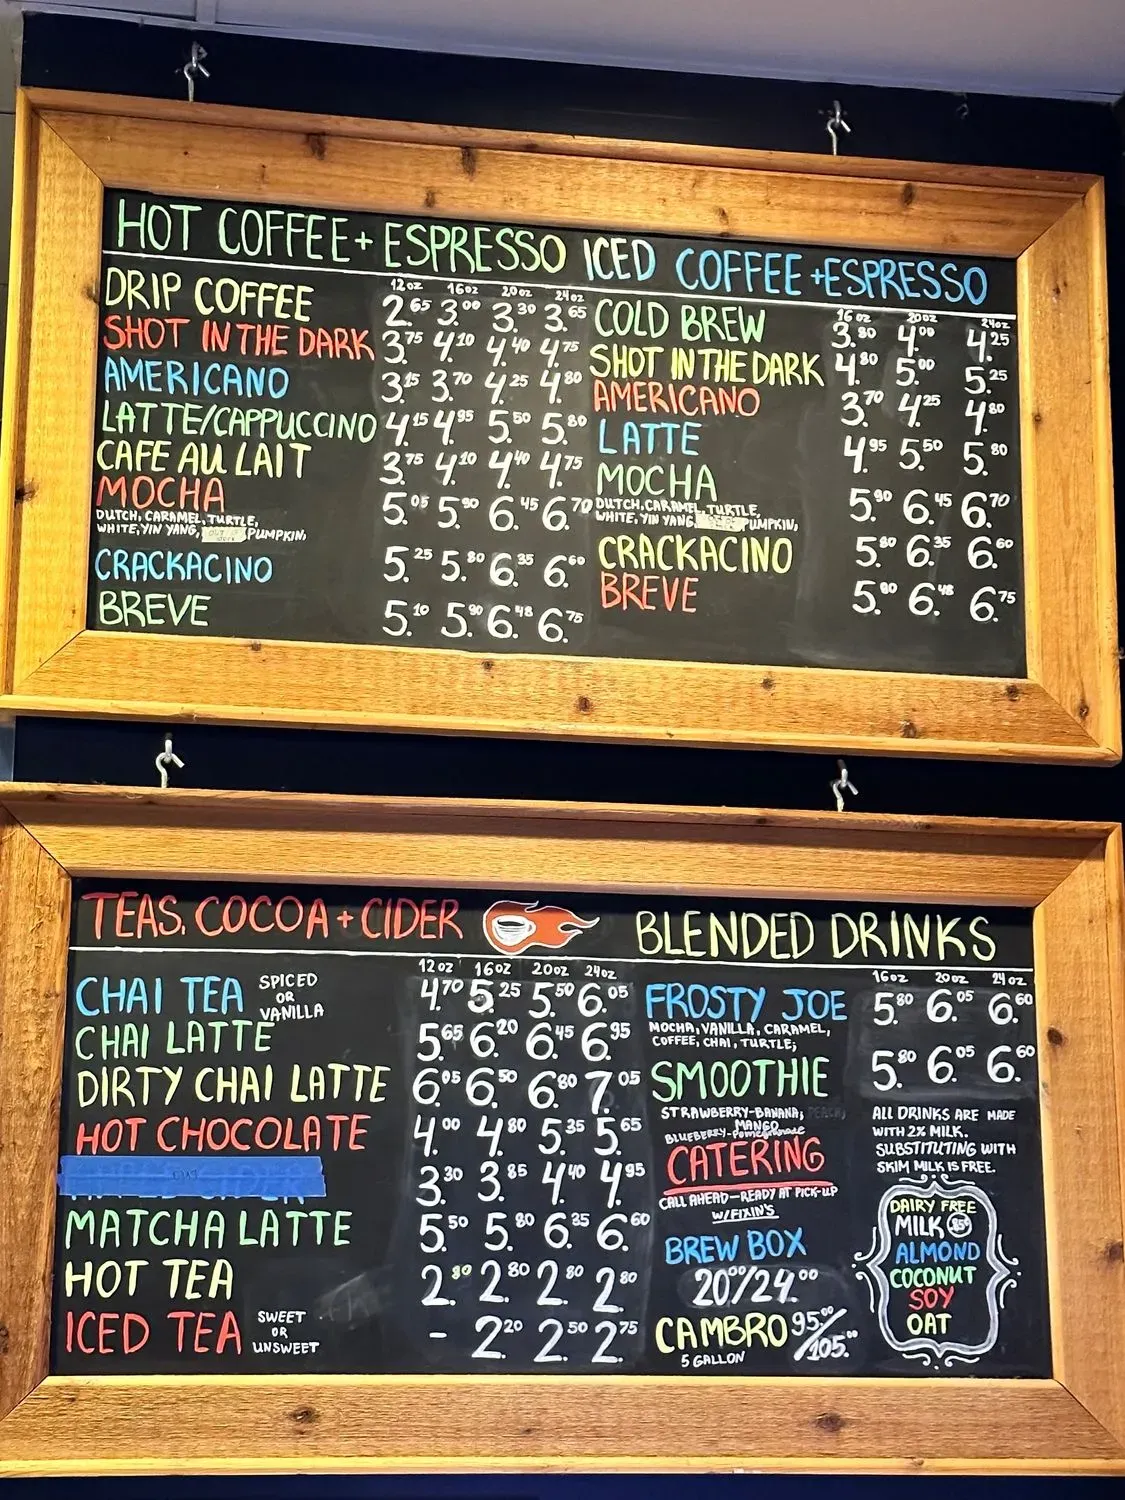 HOT COFFEE + ESPRESSO
12oz 16oz 20oz 24oz
DRIP COFFEE 2.65 3.00 3.30 3.65
SHOT IN THE DARK 3.75 4.10 4.40 4.75
AMERICANO 3.15 3.70 4.25 4.80
LATTE/CAPPUCCINO 4.15 4.95 5.50 5.80
CAFE AU LAIT 3.75 4.10 4.40 4.75
MOCHA 5.05 5.90 6.45 6.70
DUTCH, CARAMEL, TURTLE,
WHITE, YIN YANG, PUMPKIN,
CRACKACINO 5.25 5.80 6.35 6.60
BREVE 5.10 5.90 6.48 6.75
ICED COFFEE + ESPRESSO
16oz 20oz 24oz
COLD BREW 3.80 4.00 4.25
SHOT IN THE DARK 4.80 5.00 5.25
AMERICANO 3.70 4.25 4.80
LATTE 4.95 5.50 5.80
MOCHA 5.90 6.45 6.70
DUTCH, CARAMEL, TURTLE,
WHITE, YIN YANG, PUMPKIN,
CRACKACINO 5.80 6.35 6.60
BREVE 5.90 6.48 6.75
TEAS, COCOA + CIDER
12oz 16oz 20oz 24oz
CHAI TEA SPICED OR VANILLA 4.70 5.25 5.50 6.05
CHAI LATTE 5.65 6.20 6.45 6.95
DIRTY CHAI LATTE 6.05 6.50 6.80 7.05
HOT CHOCOLATE 4.00 4.80 5.35 5.65
3.30 3.85 4.40 4.95
MATCHA LATTE 5.50 5.80 6.35 6.60
HOT TEA 2.80 2.80 2.80 2.80
ICED TEA SWEET OR UNSWEET - 2.20 2.50 2.75
BLENDED DRINKS
16oz 20oz 24oz
FROSTY JOE 5.80 6.05 6.60
MOCHA, VANILLA, CARAMEL,
COFFEE, CHAI, TURTLE;
SMOOTHIE 5.80 6.05 6.60
STRAWBERRY-BANANA, PEACH,
MANGO
BLUEBERRY-Pomegranate
CATERING
CALL AHEAD—READY AT PICK-UP
W/FIXIN'S
BREW BOX
20.00/24.00
CAMBRO 95.00/105.00
5 GALLON
ALL DRINKS ARE MADE
WITH 2% MILK.
SUBSTITUTING WITH
SKIM MILK IS FREE.
DAIRY FREE
MILK .85¢
ALMOND
COCONUT
SOY
OAT